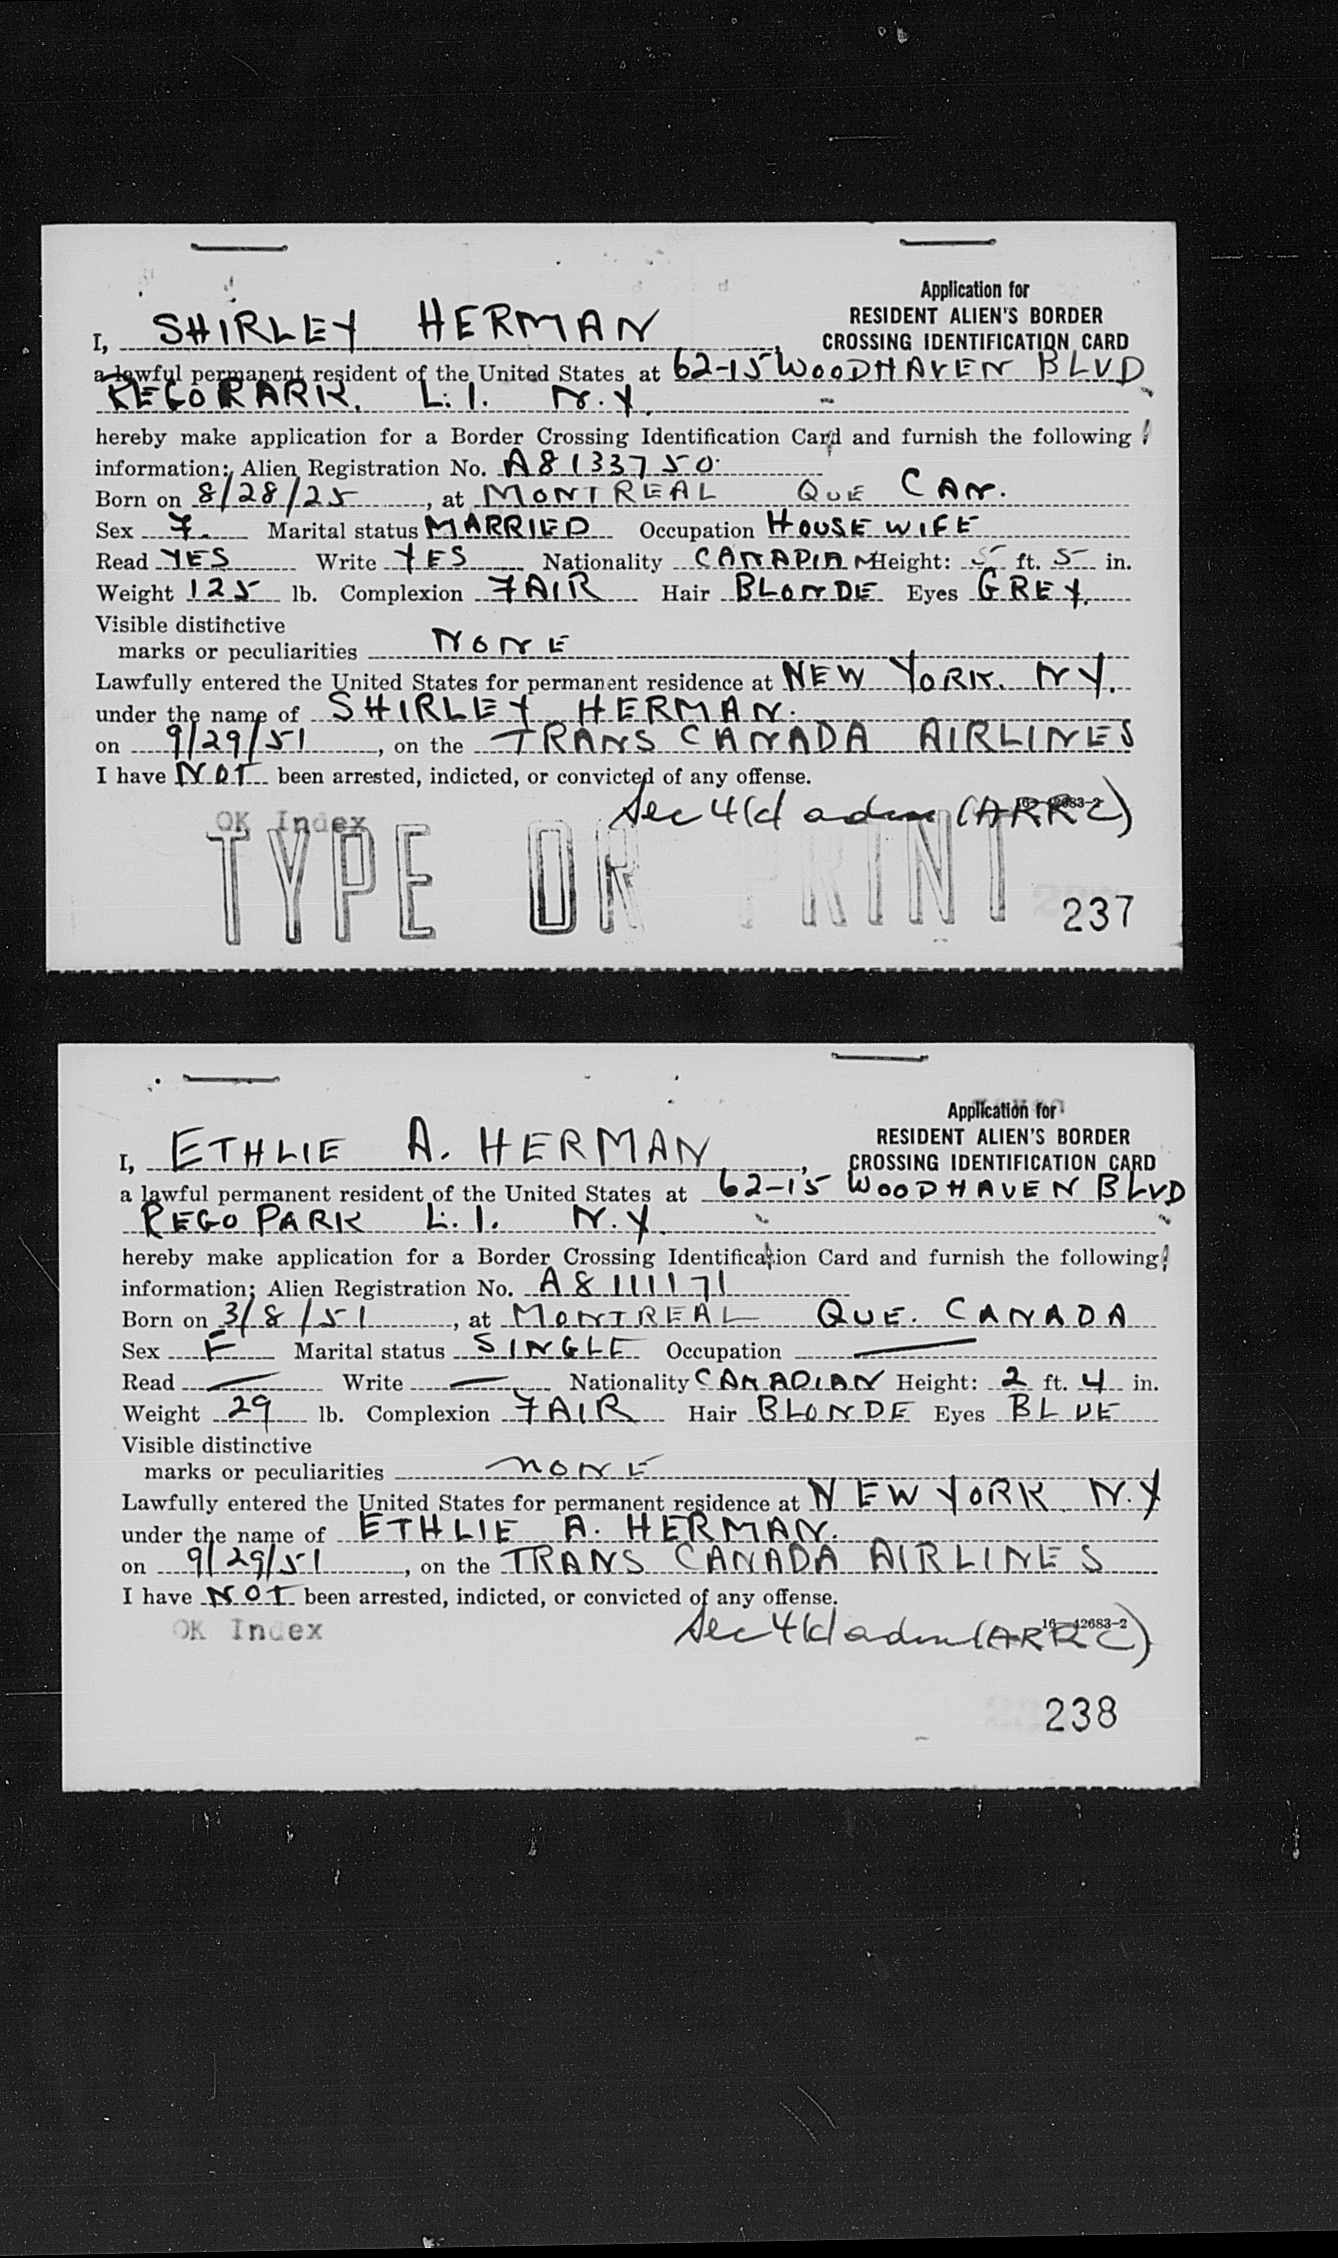 Application for
RESIDENT ALIEN'S BORDER
CROSSING IDENTIFICATION CARD
I, SHIRLEY HERMAN,
a lawful permanent resident of the United States at 62-15 WOODHAVEN BLVD
REGO PARK. L.I. N.Y.
hereby make application for a Border Crossing Identification Card and furnish the following
information: Alien Registration No. A8133750
Born on 8/28/25, at MONTREAL QUE CAN.
Sex F. Marital status MARRIED Occupation HOUSEWIFE
Read YES Write YES Nationality CANADIAN Height: 5 ft. 5 in.
Weight 125 lb. Complexion FAIR Hair BLONDE Eyes GREY.
Visible distinctive
marks or peculiarities NONE
Lawfully entered the United States for permanent residence at NEW YORK. NY.
under the name of SHIRLEY HERMAN.
on 9/29/51, on the TRANS CANADA AIRLINES
I have NOT been arrested, indicted, or convicted of any offense.
16—42683-2
Sec 4(c) adm (ARRC)
OK Index
TYPE OR PRINT
237
Application for
RESIDENT ALIEN'S BORDER
CROSSING IDENTIFICATION CARD
I, ETHLIE A. HERMAN,
a lawful permanent resident of the United States at 62-15 WOODHAVEN BLVD
REGO PARK L.I. N.Y.
hereby make application for a Border Crossing Identification Card and furnish the following
information: Alien Registration No. A8111171
Born on 3/8/51, at MONTREAL QUE. CANADA
Sex F Marital status SINGLE Occupation —
Read — Write — Nationality CANADIAN Height: 2 ft. 4 in.
Weight 29 lb. Complexion FAIR Hair BLONDE Eyes BLUE
Visible distinctive
marks or peculiarities NONE
Lawfully entered the United States for permanent residence at NEW YORK N.Y
under the name of ETHLIE A. HERMAN.
on 9/29/51, on the TRANS CANADA AIRLINES
I have NOT been arrested, indicted, or convicted of any offense.
16—42683-2
Sec 4(c) adm (ARRC)
OK Index
238